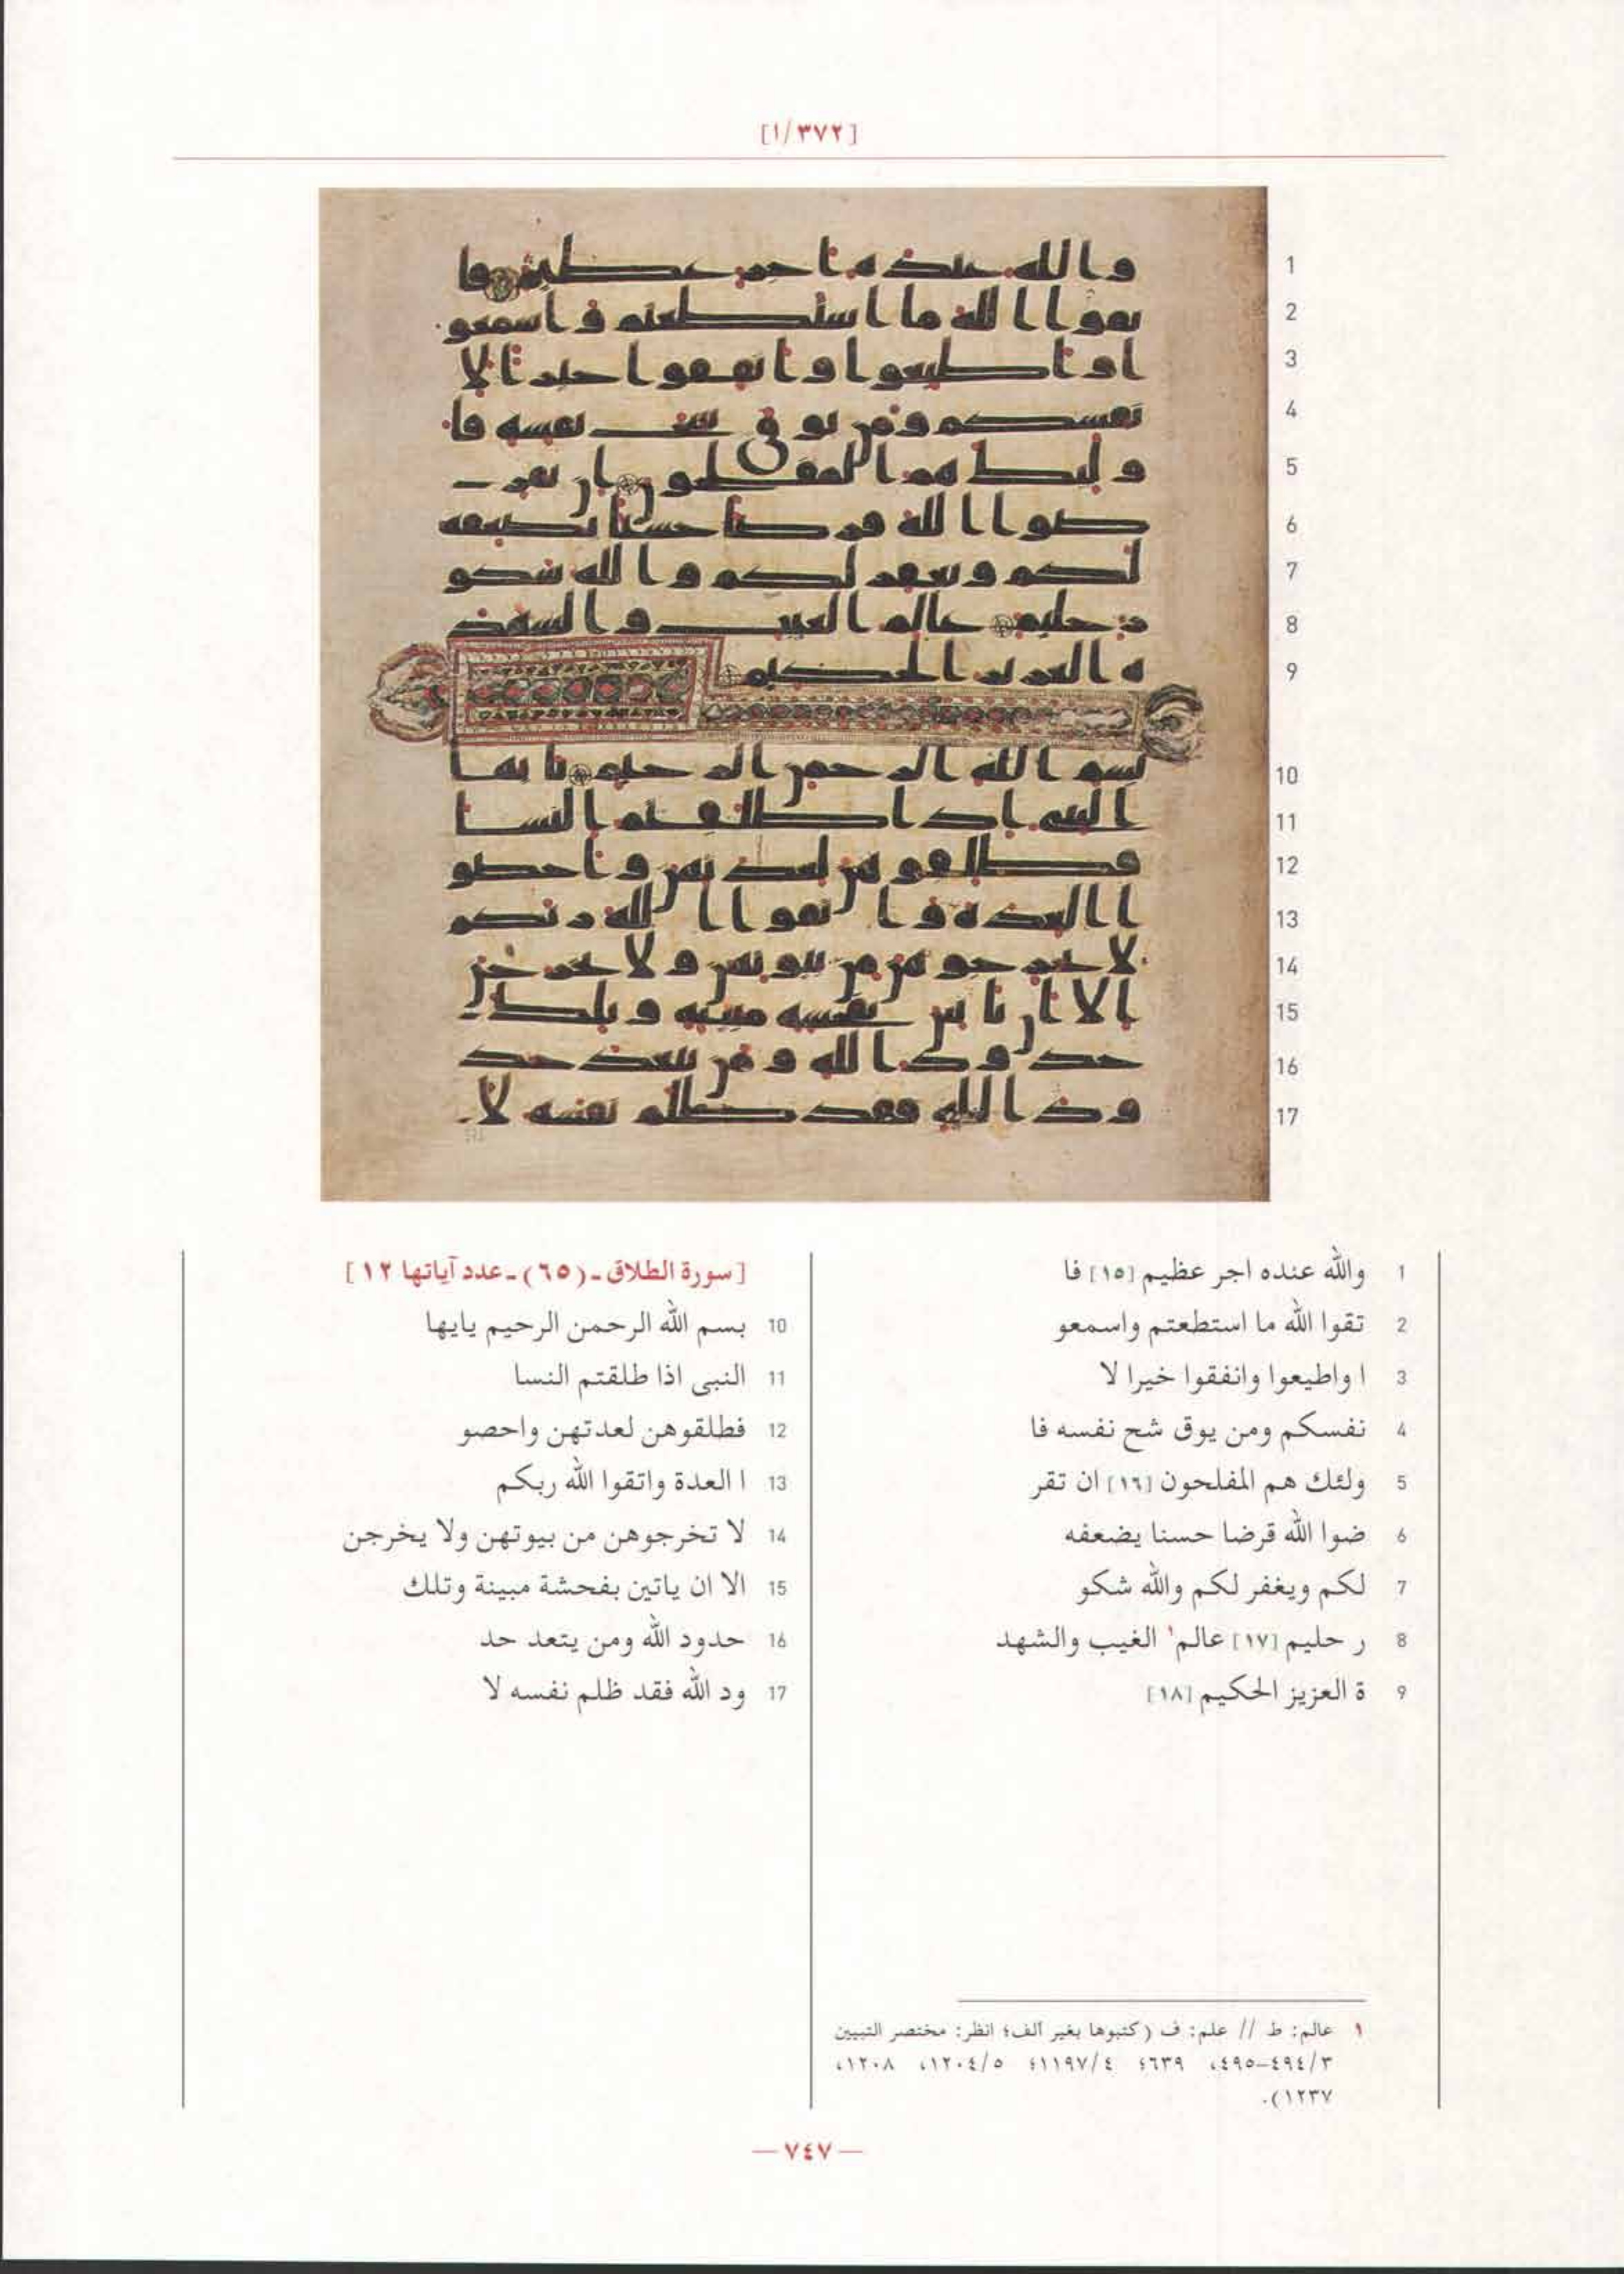 [١/٣٧٢]
1 والله عنده اجر عظيم [١٥] فا
2 تقوا الله ما استطعتم واسمعو
3 ا واطيعوا وانفقوا خيرا لا
4 نفسكم ومن يوق شح نفسه فا
5 ولئك هم المفلحون [١٦] ان تقر
6 ضوا الله قرضا حسنا يضعفه
7 لكم ويغفر لكم والله شكو
8 ر حليم [١٧] عالم١ الغيب والشهد
9 ة العزيز الحكيم [١٨]
[سورة الطلاق ـ (٦٥) ـ عدد آياتها ١٢]
10 بسم الله الرحمن الرحيم يايها
11 النبى اذا طلقتم النسا
12 فطلقوهن لعدتهن واحصو
13 ا العدة واتقوا الله ربكم
14 لا تخرجوهن من بيوتهن ولا يخرجن
15 الا ان ياتين بفحشة مبينة وتلك
16 حدود الله ومن يتعد حد
17 ود الله فقد ظلم نفسه لا
١ عالم: ط // علم: ف (كتبوها بغير ألف؛ انظر: مختصر التبيين
٣/٤٩٤–٤٩٥، ٦٣٩؛ ٤/١١٩٧؛ ٥/١٢٠٤، ١٢٠٨،
١٢٣٧).
— ٧٤٧ —